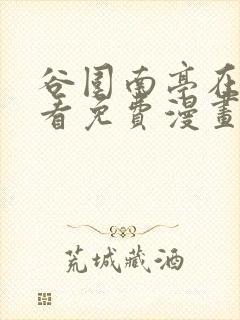 谷围南亭在
看免费漫畫
荒城藏酒